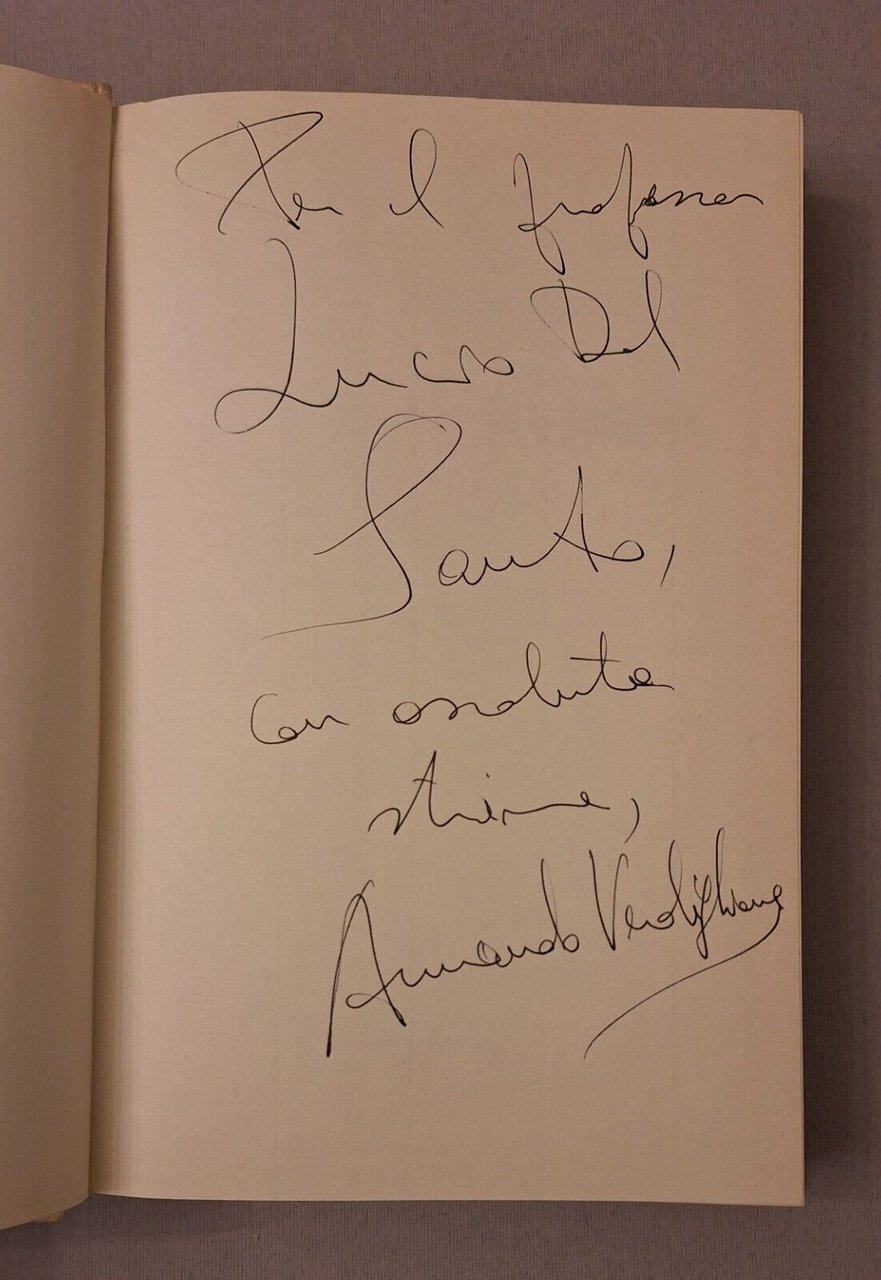 Per il professor
Lucio Del
Santo,
con assoluta
stima,
Armando Verdiglione